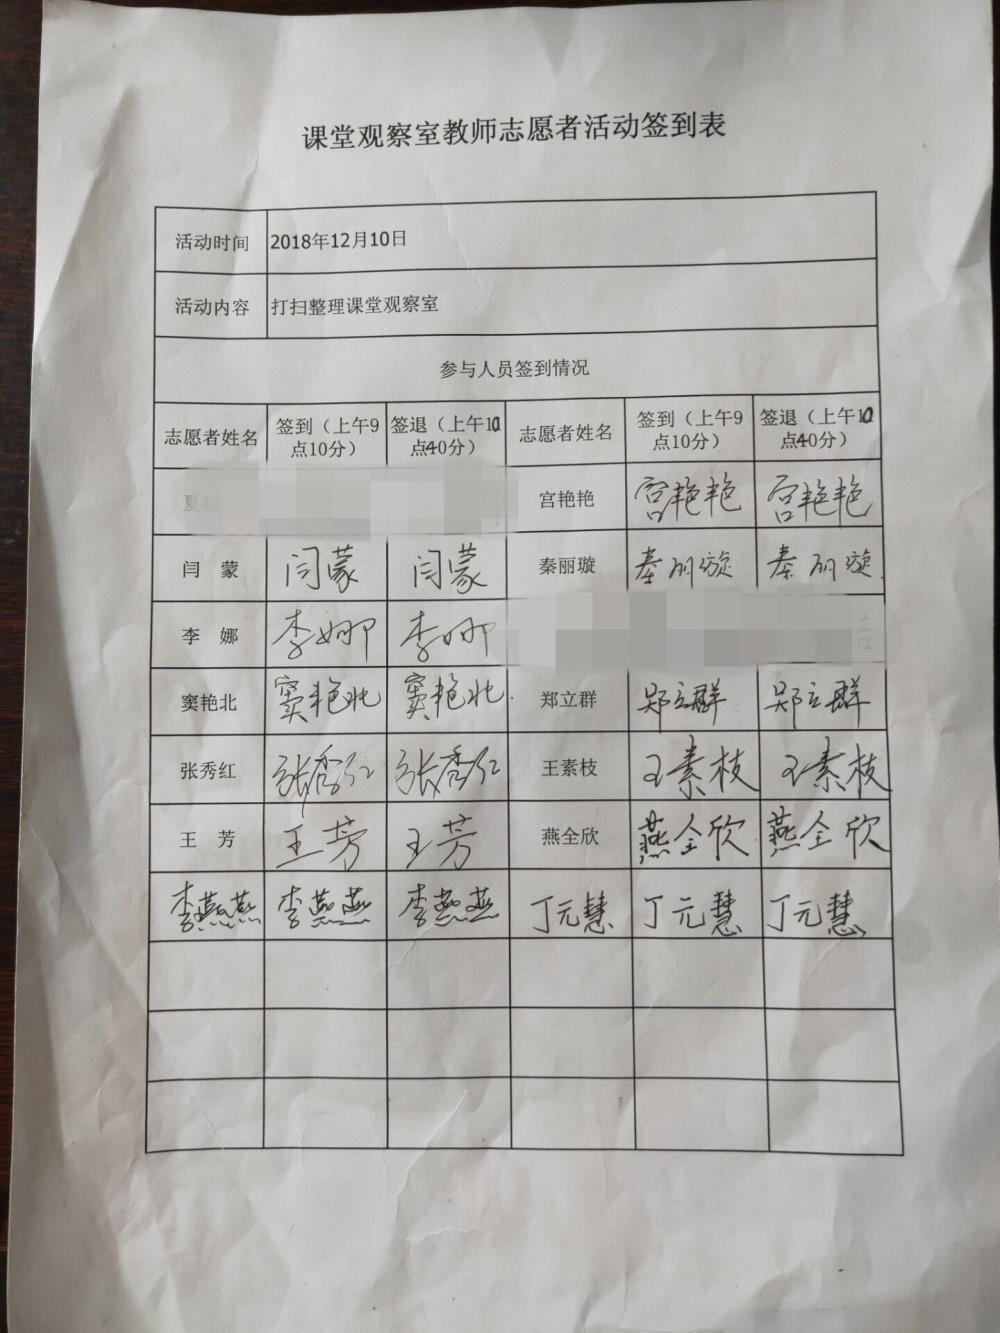 课堂观察室教师志愿者活动签到表
活动时间 2018年12月10日
活动内容 打扫整理课堂观察室
参与人员签到情况
志愿者姓名 签到（上午9点10分） 签退（上午10点40分） 志愿者姓名 签到（上午9点10分） 签退（上午10点40分）
夏 宫艳艳 宫艳艳 宫艳艳
闫 蒙 闫蒙 闫蒙 秦丽璇 秦丽璇 秦丽璇
李 娜 李娜 李娜
窦艳北 窦艳北 窦艳北 郑立群 郑立群 郑立群
张秀红 张秀红 张秀红 王素枝 王素枝 王素枝
王 芳 王芳 王芳 燕全欣 燕全欣 燕全欣
李燕燕 李燕燕 李燕燕 丁元慧 丁元慧 丁元慧